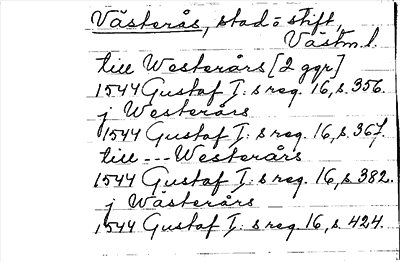 Västerås, stad o stift,
Västm. l.
till Westerårs [2 ggr]
1544 Gustaf I: s reg. 16, s. 356.
j Westerårs
1544 Gustaf I: s reg. 16, s. 367.
till --- Westerårs
1544 Gustaf I: s reg. 16, s. 382.
j Wästerårs
1544 Gustaf I: s reg. 16, s. 424.